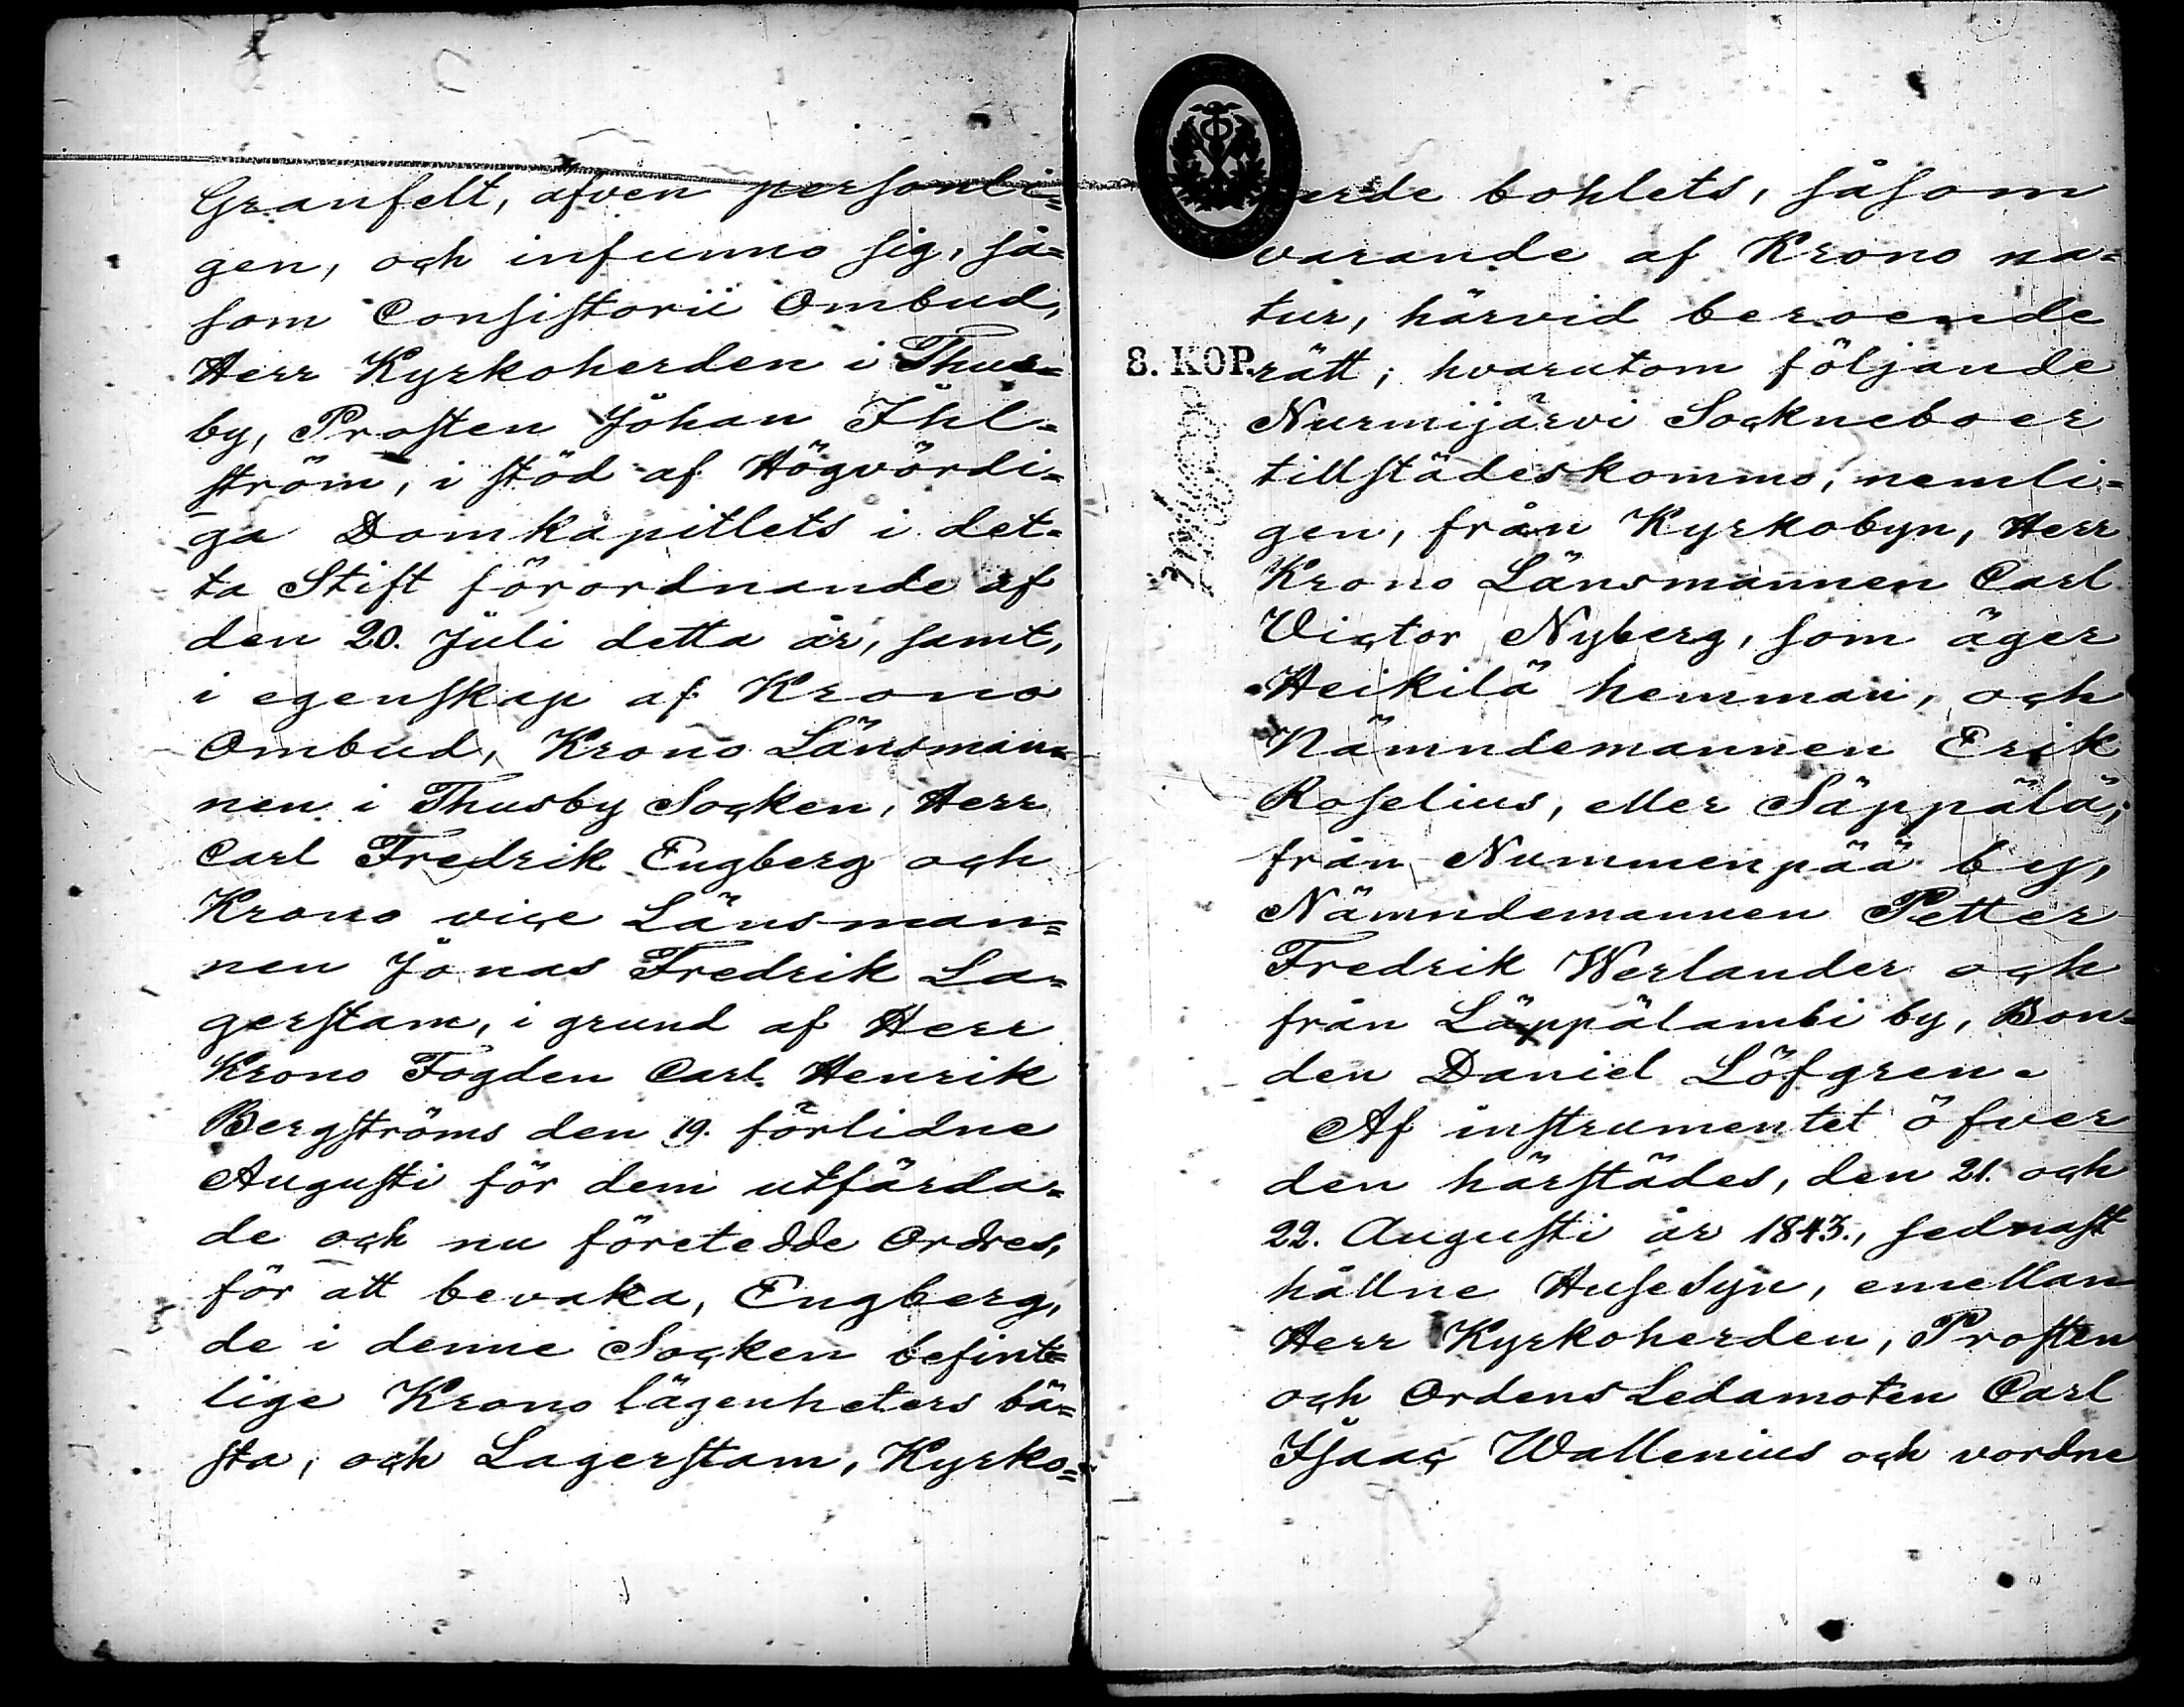 Granfelt, äfven personli=
gen, och infunno sig, så=
som Consistorii Ombud,
Herr Kyrkoherden i Thus=
by, Prosten Johan Ihl=
ström, i stöd af Högvördi=
ga Domkapitlets i det=
ta Stift förordnande af
den 20. Juli detta år, samt,
i egenskap af Krono
Ombud, Krono Länsman=
nen i Thusby Socken, Herr
Carl Fredrik Engberg och
Krono vice Länsman=
nen Jonas Fredrik La=
gerstam, i grund af Herr
Krono Fogden Carl Henrik
Bergströms den 19. förlidne
Augusti för dem utfärda=
de och nu företedde Ordres,
för att bevaka, Engberg,
de i denne Socken befint=
lige Krono lägenheters bä=
sta, och Lagerstam, Kyrko=
herde bohlets, såsom
varande af Krono na=
tur, härvid beroende
8. KOP.
rätt; hvarutom följande
Nurmijärvi Sockneboer
tillstädeskommo, nemli=
gen, från Kyrkobyn, Herr
Krono Länsmannen Carl
Victor Nyberg, som äger
Heikilä hemman, och
Nämndemannen Erik
Roselius, eller Säppälä;
från Nummenpää by,
Nämndemannen Petter
Fredrik Werlander och
från Läppälambi by, Bon=
den Daniel Löfgren.
Af instrumentet öfver
den härstädes, den 21. och
22. Augusti år 1843., sednast
hållne Husesyn, emellan
Herr Kyrkoherden, Prosten
och Ordens Ledamoten Carl
Isaac Wallenius och vordne